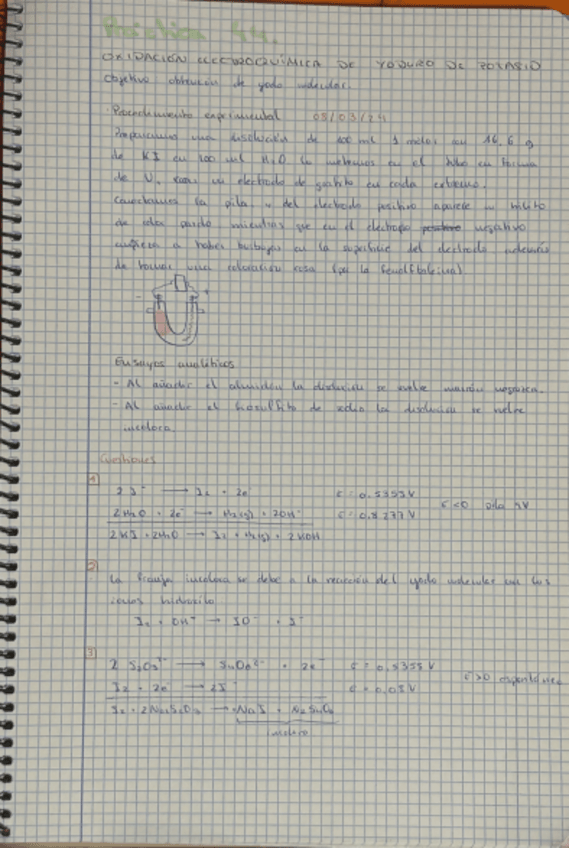 Práctica 44.
OXIDACIÓN ELECTROQUÍMICA DE YODURO DE POTASIO
Objetivo obtención de yodo molecular.
Procedimiento experimental 08/03/24
Preparamos una disolución de 100 ml 1 molar con 16,6 g
de KI en 100 ml H2O lo metemos en el tubo en forma
de U, con un electrodo de grafito en cada extremo.
Conectamos la pila, y del electrodo positivo aparece un
de color pardo mientras que en el electrodo positivo negativo
empieza a haber burbujas en la superficie del electrodo además
de tomar una coloración rosa (por la fenolftaleína)
- +
Ensayos analíticos
- Al añadir el almidón la disolución se vuelve marrón negruzca.
- Al añadir el tiosulfito de sodio la disolución se vuelve
incolora.
Cuestiones
1
2I⁻ → I2 + 2e⁻ ε = 0.5355V
2H2O + 2e⁻ → H2(g) + 2OH⁻ ε = 0.8277V ε<0 pila
2KI + 2H2O → I2 + H2(g) + 2KOH
2
La franja incolora se debe a la reacción del yodo molecular con los
iones hidroxilo
I2 + OH⁻ → IO⁻ + I⁻
3
2 S2O3²⁻ → S4O6²⁻ + 2e⁻ ε = 0.5355V
I2 + 2e⁻ → 2I⁻ ε = 0.08V ε>0 espontánea
I2 + 2Na2S2O3 → NaI + Na2S4O6
incoloro